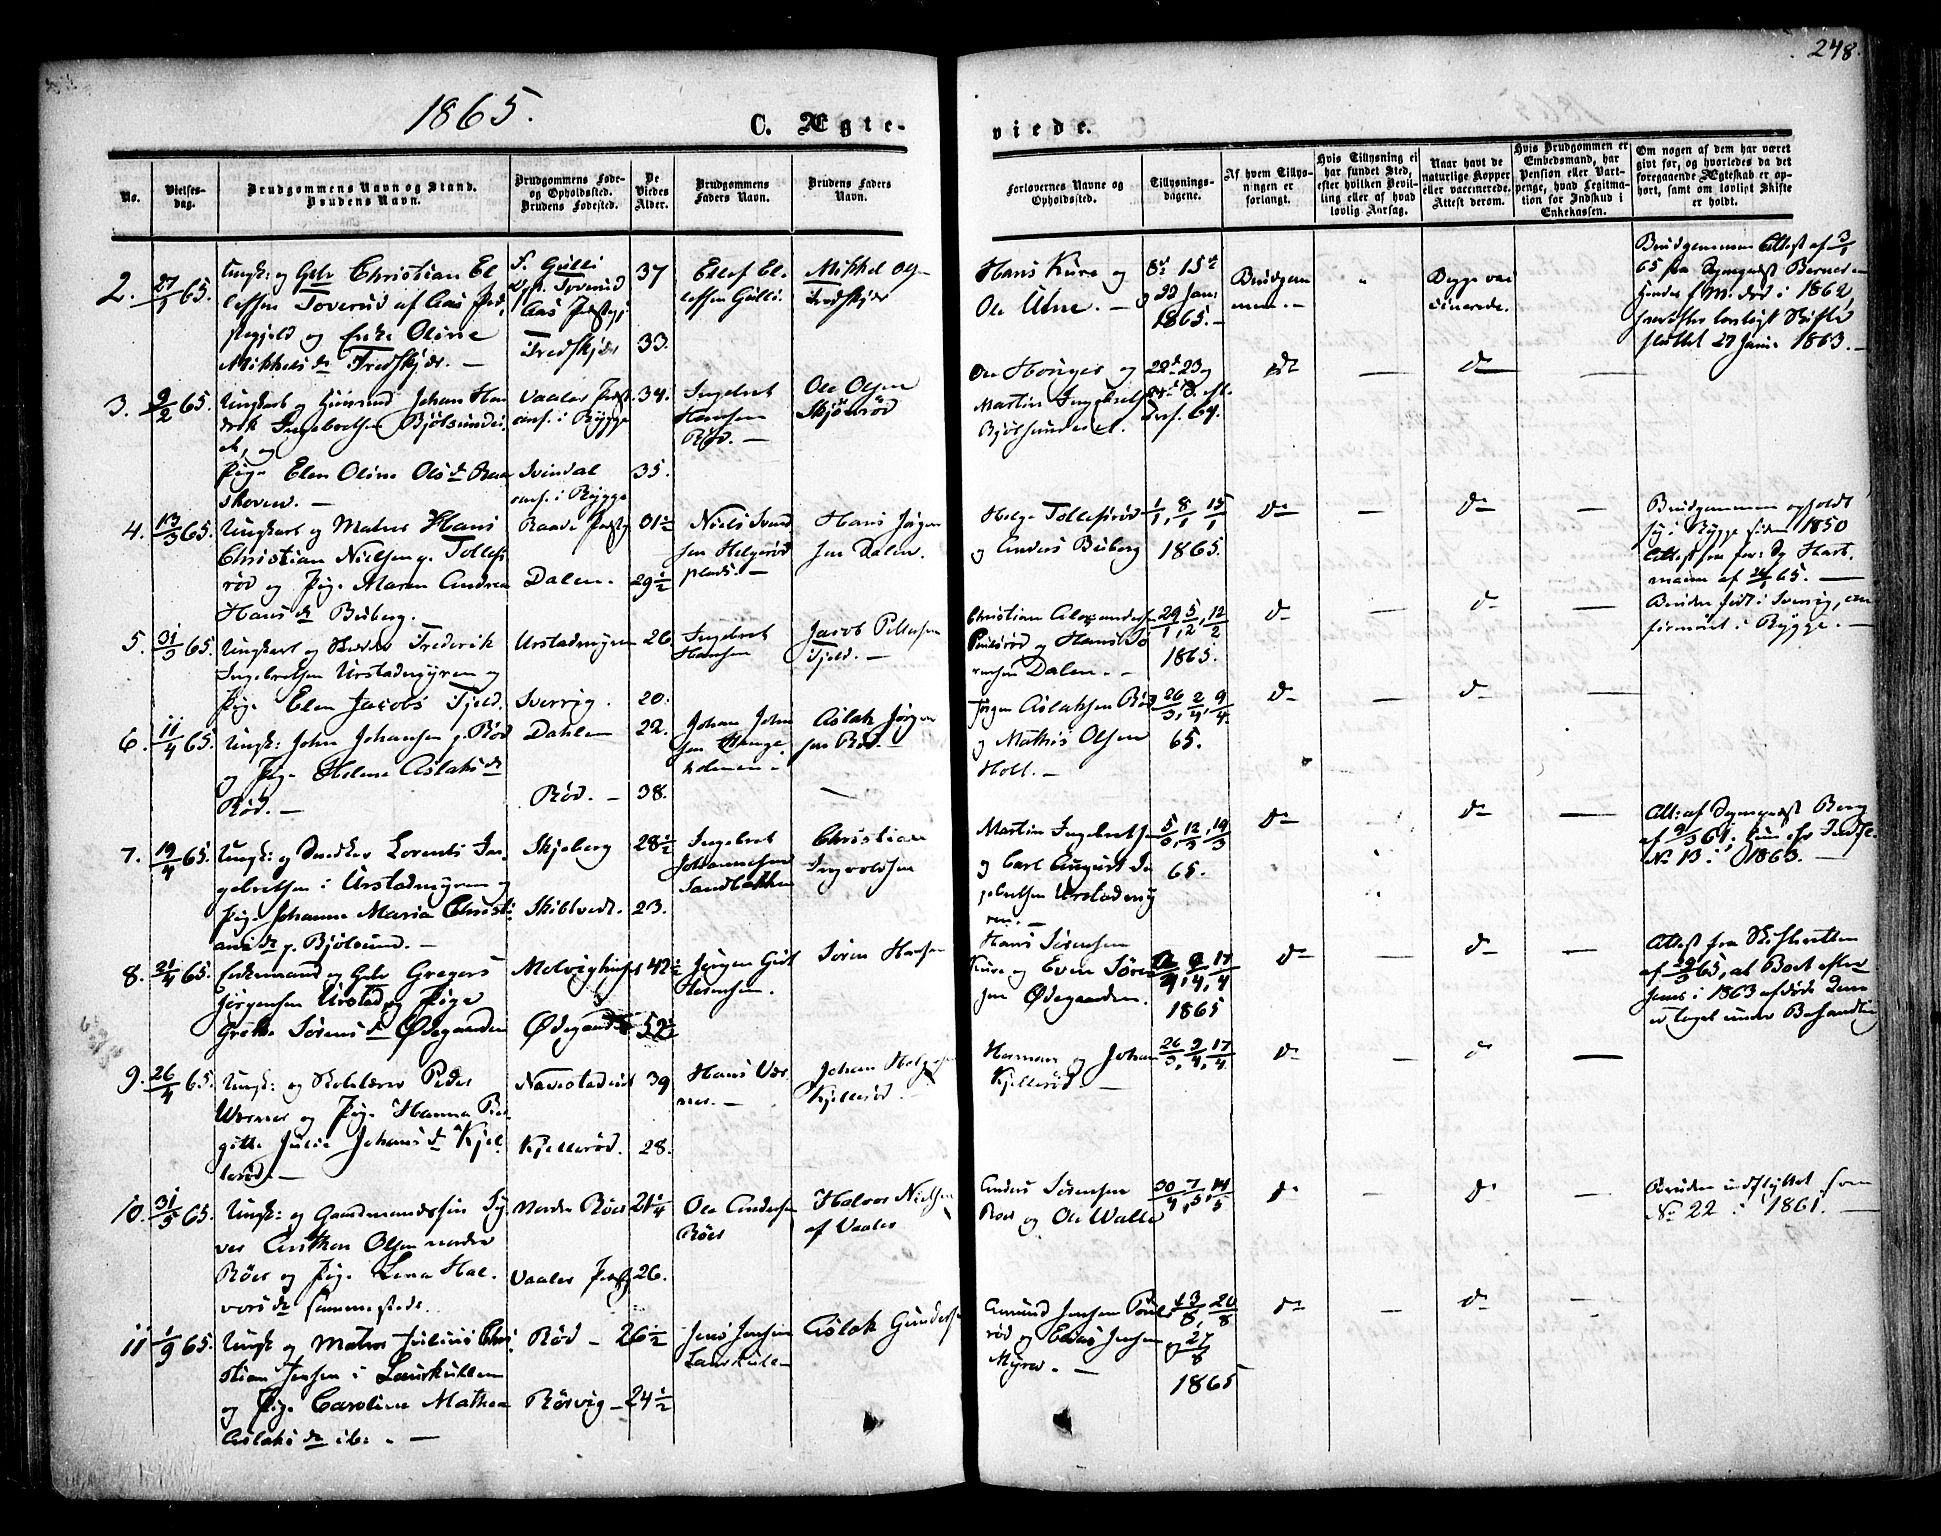 248.
1865.
C. Ægte-
viede.
No.
Vielses-
dag.
Brudgommens Navn og Stand.
Brudens Navn.
Brudgommens Føde-
og Opholdssted.
Brudens Fødested.
De
Viedes
Alder.
Brudgommens
Faders Navn.
Brudens Faders
Navn.
Forlovernes Navne og
Opholdssted.
Tillysnings-
dagene.
Af hvem Tillys-
ningen er
forlangt.
Hvis Tillysning ei
har fundet Sted,
efter hvilken Bevil-
ling eller af hvad
lovlig Aarsag.
Naar havt de
naturlige Kopper
eller vaccinerede.
Attest derom.
Hvis Brudgommen er
Embedsmand, har
Pension eller Vart-
penge, hvad Legitma-
tion for Indskud i
Enkekassen.
Om nogen af dem har været
gift før, og hvorledes da det
foregaaende Ægteskab er op-
hørt, samt om lovligt Skifte
er holdt.
2. 27/1 65.
Ungk: og Gdr Christian El
lefsen Toverud af Aas Præ
stegjeld og Enke Oline
Mikkelsdr Fredskjær. —
F. Gulli
Oph. Toverud
Aas Præstgj
Fredskjær
37
33.
Ellef El-
lefsen Gulli.
Mikkel Ols
Fredskjær
Hans Kure og
Ole Ulne. —
8d 15d
og 22 Jan:
1865. —
Brudgom
men. —
"
Begge vac
cinerede.
Brudgommens Attest af 3/1
65 fra Sogneprest Berner om
hendes f. M. død i 1862,
hvorefter lovligt Skifte
sluttet 27 Jani 1863. —
3. 9/2 65.
Ungkarl og Huusmd Johan Hen
drik Ingebretsen Bjølsundei
et, og
Pige Elen Oline Olsdr Raa
skoven. —
Vaaler Præst
conf. i Rygge
Svindal
conf. i Rygge
34.
35.
Ingebret
Hansen
Rød. —
Ole Olsen
Skjönrød
Ole Honges og
Martin Ingebrets
Bjølsundeiet.
22d 23 og
Tref. 64.
do
—
do
—
4. 13/3 65.
Ungkarl og Matros Hans
Christian Nielsen p. Tollefs
rød og Pige Maren Andrea
Hansdr Buberg.
Raade Præstg
Dalen.
31 1/2
29 1/2
Niels Svend
sen Helgerød
plads. —
Hans Jørgen
sen Dalen.
Helge Tollefsrød
og Anders Buberg
1/1, 8/1 15/1
1865.
do
—
do
—
Brudgommen opholdt
sig i Rygge siden 1850
Attest fra for: Sg Hart
mann af 24/1 65. —
5. 31/3 65.
Ungkarl og Skredder Frederik
Ingebretsen Urstadmyren og
Pige Elen Jacobs Fjeld.
Urstadmyren
Sverrig.
26
20.
Ingebret
Hansen
Jacob Pettersen
Fjeld. —
Christian Alexandersen
og Hans So
rensen Dalen. —
29/1, 5/2, 12/2
1865.
do
—
do
—
Bruden født i Sverrig, con
firmeret i Rygge. —
6. 11/4 65.
Ungk: John Johansen p. Rød
og Pige Helene Aslaksdr
Rød. —
Dahlen
Rød. —
22.
38.
Johan John
sen Hauge
holmen. —
Aslak Jørgen
sen Rød. —
Jørgen Aslaksen Rød
og Mathis Olsen
Holt. —
26/3, 2/4, 9/4
65.
do
—
do
—
7. 19/4 65.
Ungk: og Snedker Lorents In
gebretsen i Urstadmyren og
Pige Johanne Maria Christi
ansdr p. Bjølsund. —
Skjeberg
Skibtvedt.
28 1/2
23.
Ingebret
Johannesen
Sandbakken
Christian
Ingvoldsen
Martin Ingebretsen
og Carl August In
gebretsen Urstadmy
ren. —
5/3, 12/3, 19/3
65.
do
do
—
Att: af Sognepræst Berg
No 13 i 1863. —
8. 21/4 65.
Enkemand og Gdr Gregers
Jørgensen Urstad og Pige
Grethe Sørensdr Ødegaarden
Ødegaard
42 1/2
52 1/2
Jørgen Gul
Søren Hansen
Hans Sørensen
Kure og Even Søren
sen Ødegaarden.
2/4, 9/4, 17/4
1865
do
—
do
—
Attest fra Skifteretten
af 29/3 65, at Boet efter
hans i 1863 afdøde Kone
er taget under Behandling
9. 26/4 65.
Ungk: og Skolelærer Peder
Werner og Pige Hanna Bir
gitte Julie Johansdr Kjel
lerød. —
Navestadeiet
Kjellerød.
39
28.
Hans Wer
ner. —
Johan Helgesen
Kjellerød. —
Herman og Johan
Kjellerød. —
26/3, 9/4, 17/4
do
—
do
—
10. 31/5 65.
Ungk: og Gaardmandssøn Sy
ver Anthon Olsen nordre
Röer og Pige Lena Hal
vorsdr sammesteds.
Nordre Röer
Vaaler Præstg
21 1/4
26.
Ole Andersen
Röer
Halvor Nielsen
af Vaaler
Anders Sørensen
Roer og Ole Walle
30/4, 7/5, 14/5
do
—
do
—
Bruden indflyttet som
No 22 i 1861. —
11 1/9 65.
Ungk og Matros Julius Chri
stian Jensen i Laurkullen
og Pige Caroline Mathea
Aslaksdr ibi. —
Rød —
Rörvig —
26 1/2
24 1/2
Jens Jensen
Laurkullen
Aslak Gundersen
Amund Jensen Poul
rød og Elias Jensen
Myra. —
13/8, 20/8
og 27/8
1865
do
—
do
—